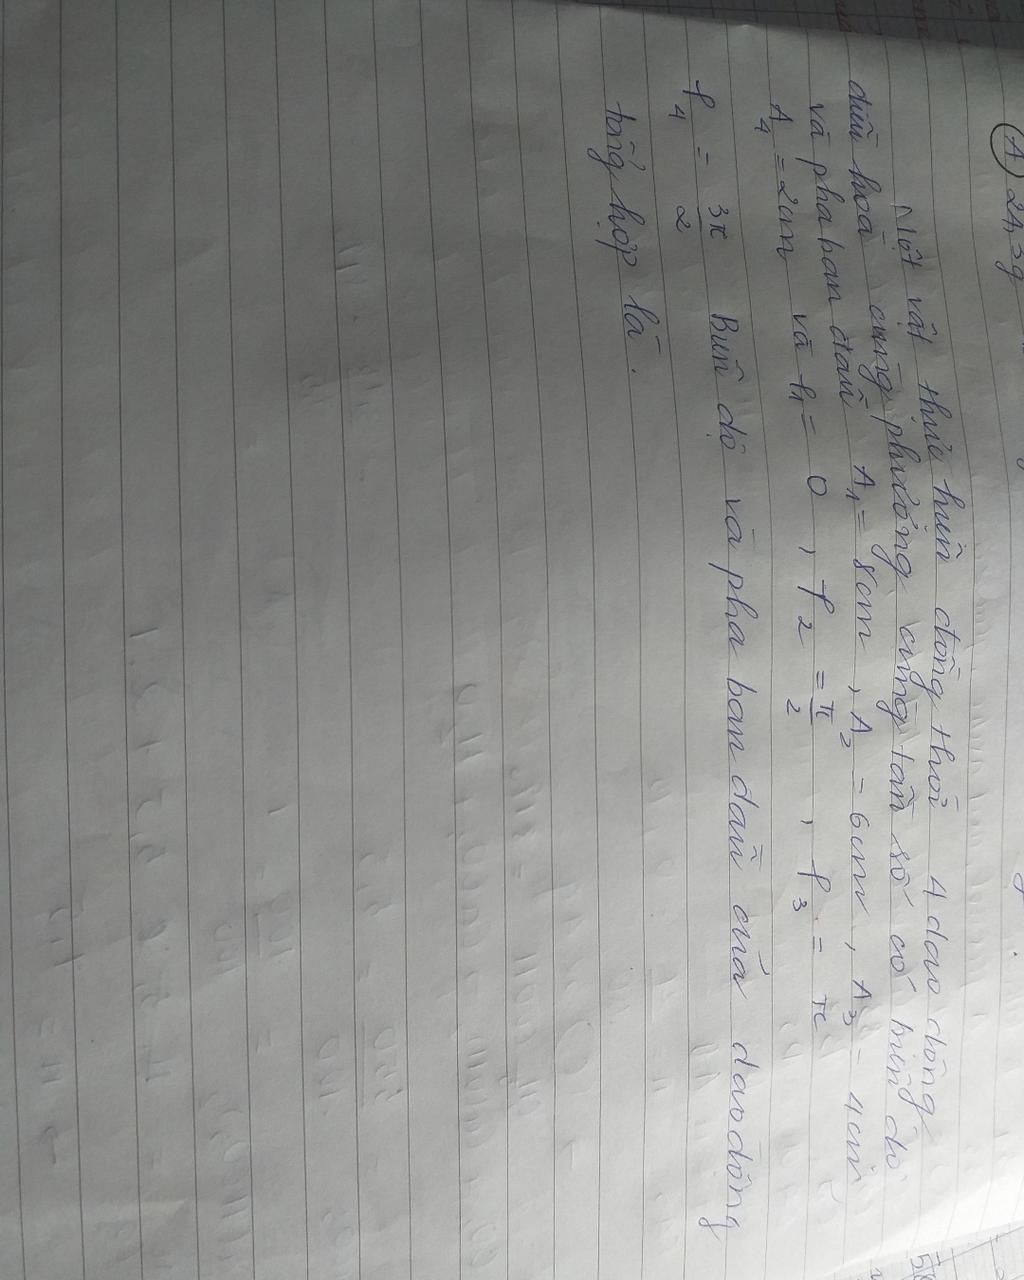 A 24,3g
Một vật thực hiện đồng thời 4 dao động
điều hoà cùng phương cùng tần số có biên độ
và pha ban đầu A₁ = 8cm , A₂ = 6cm , A₃ = 4cm
A₄ = 2cm và φ₁ = 0 , φ₂ = π/2 , φ₃ = π
φ₄ = 3π/2 Biên độ và pha ban đầu của dao động
tổng hợp là .